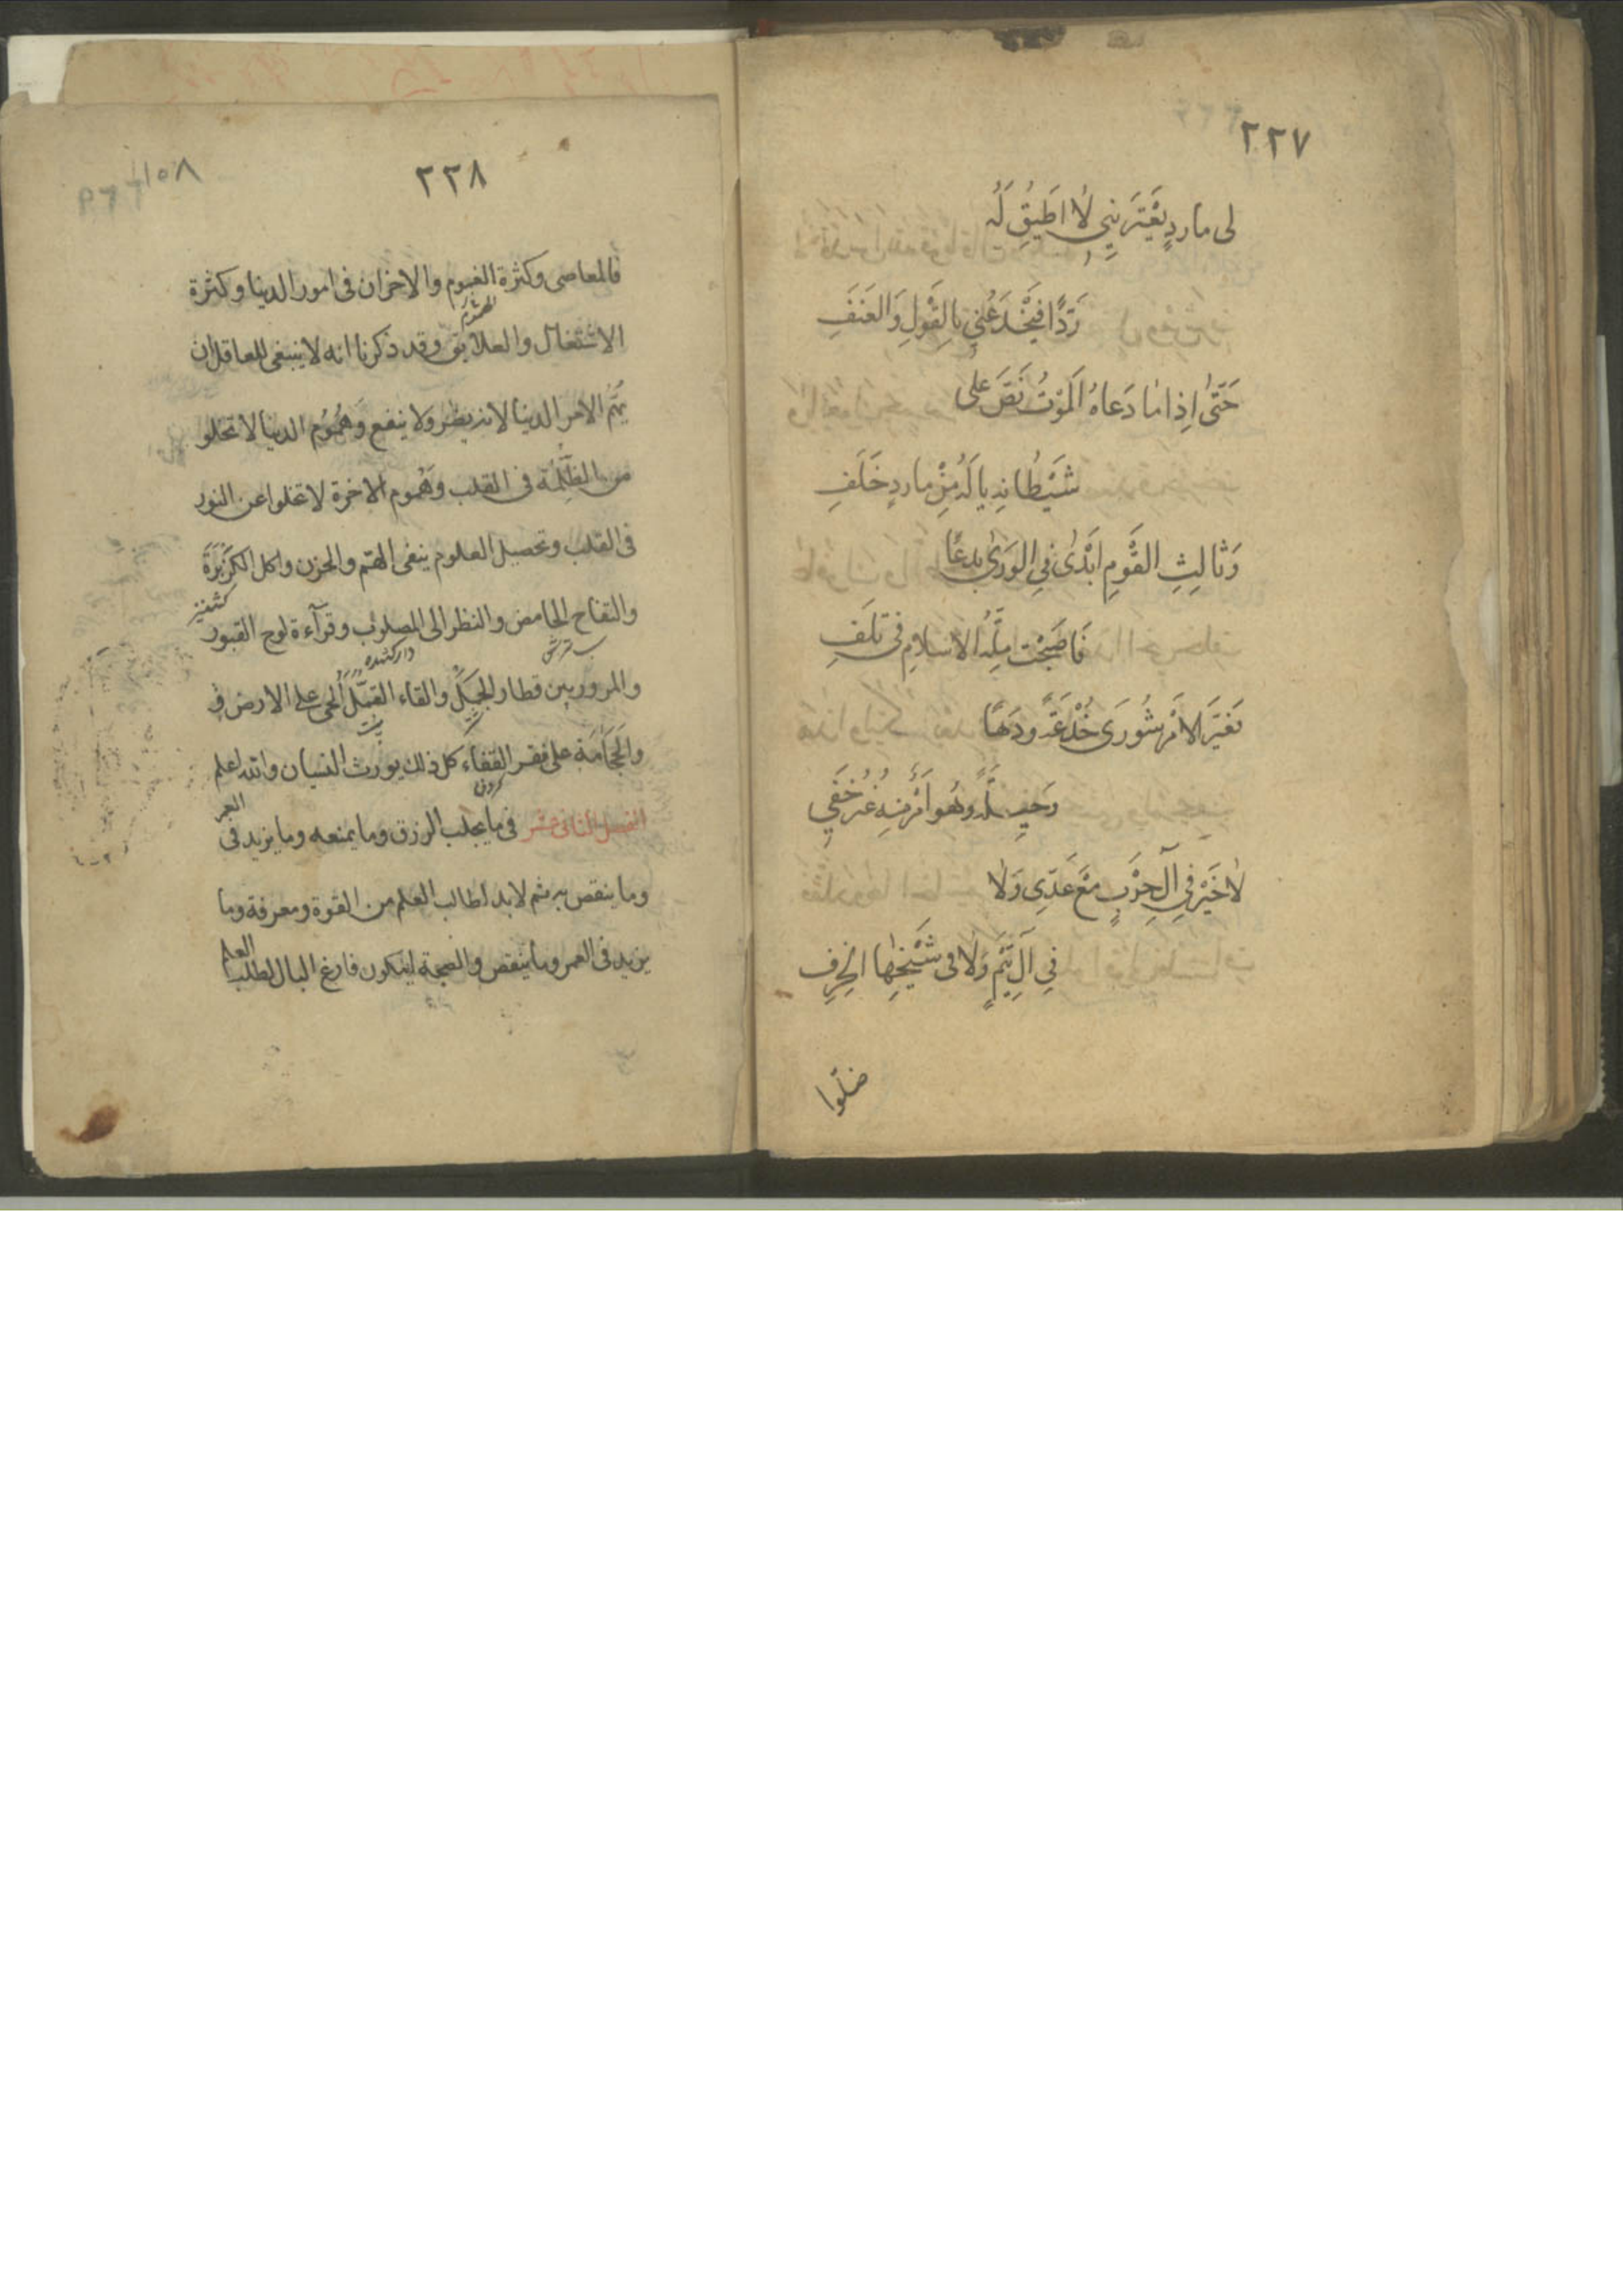 ٢٢٧
لی مارد یَعْتَرینِی لا اطیقُ لَهُ
رَدًّا فَیَخْدَعُنِی بِالقَوْلِ وَالعَنَفِ
حَتّی اِذا ما دَعاهُ المَوْتُ نَصَّ عَلی
شَیْطانِهِ یالَهُ مِنْ مارِدٍ خَلَفِ
وَثالِثِ القَوْمِ ابَدْی فِی الوَری بِدَعًا
فَاصَبْحَتْ مِلَّهُ الاسلامِ فی تَلَفِ
شُورَی خُدْعَةً وَدَهًا
وَهُو امَرٌ مِنِهُ غَیرُ خَفِی
لا خَیْرَ فی آلِ حِزْبٍ مَعْ عَدّیِ وَلا
فِی آلِ تَیْمٍ وَلا فی شَیْخِها الخرِفِ
ضلّوا
٢٢٨
١٥٨
فالمعاصی وکثرة الغموم والاخزان فی امور الدنیا وکثرة
الاشتغال والعلایق وقد ذکرنا انه لا ینبغی للعاقل ان
یهتَم الامر الدنیا لانه یضر ولا ینفع وَهُمُوُم الدنیا لا تخلو
من الظُلمة فی القلب وَهُموم الاخرة لا تخلوا عن النور
فی القلب وتحصیل العلوم ینفی الهّم والحزن واکل الکزبَرَة
کشنیز
والتفاح الحامض والنظر الی المصلوُب وقرآءة لوح القبور
دار کشده
والمرور بین قطار الجمَل والقاء القمَّل الحی علی الارض و
والحجَامَة علی فقر القفاء کل ذلک یورث النسیان والله اعلم
الفصل الثانی عشر فی ما یجلب الرزق وما یمنعه وما یزید فی العمر
وما ینقص به ثم لا بد لطالب العلم من القوة ومعرفة وما
یزید فی العمر وما ینقص والصحة لیکون فارغ البال لطلب العلم